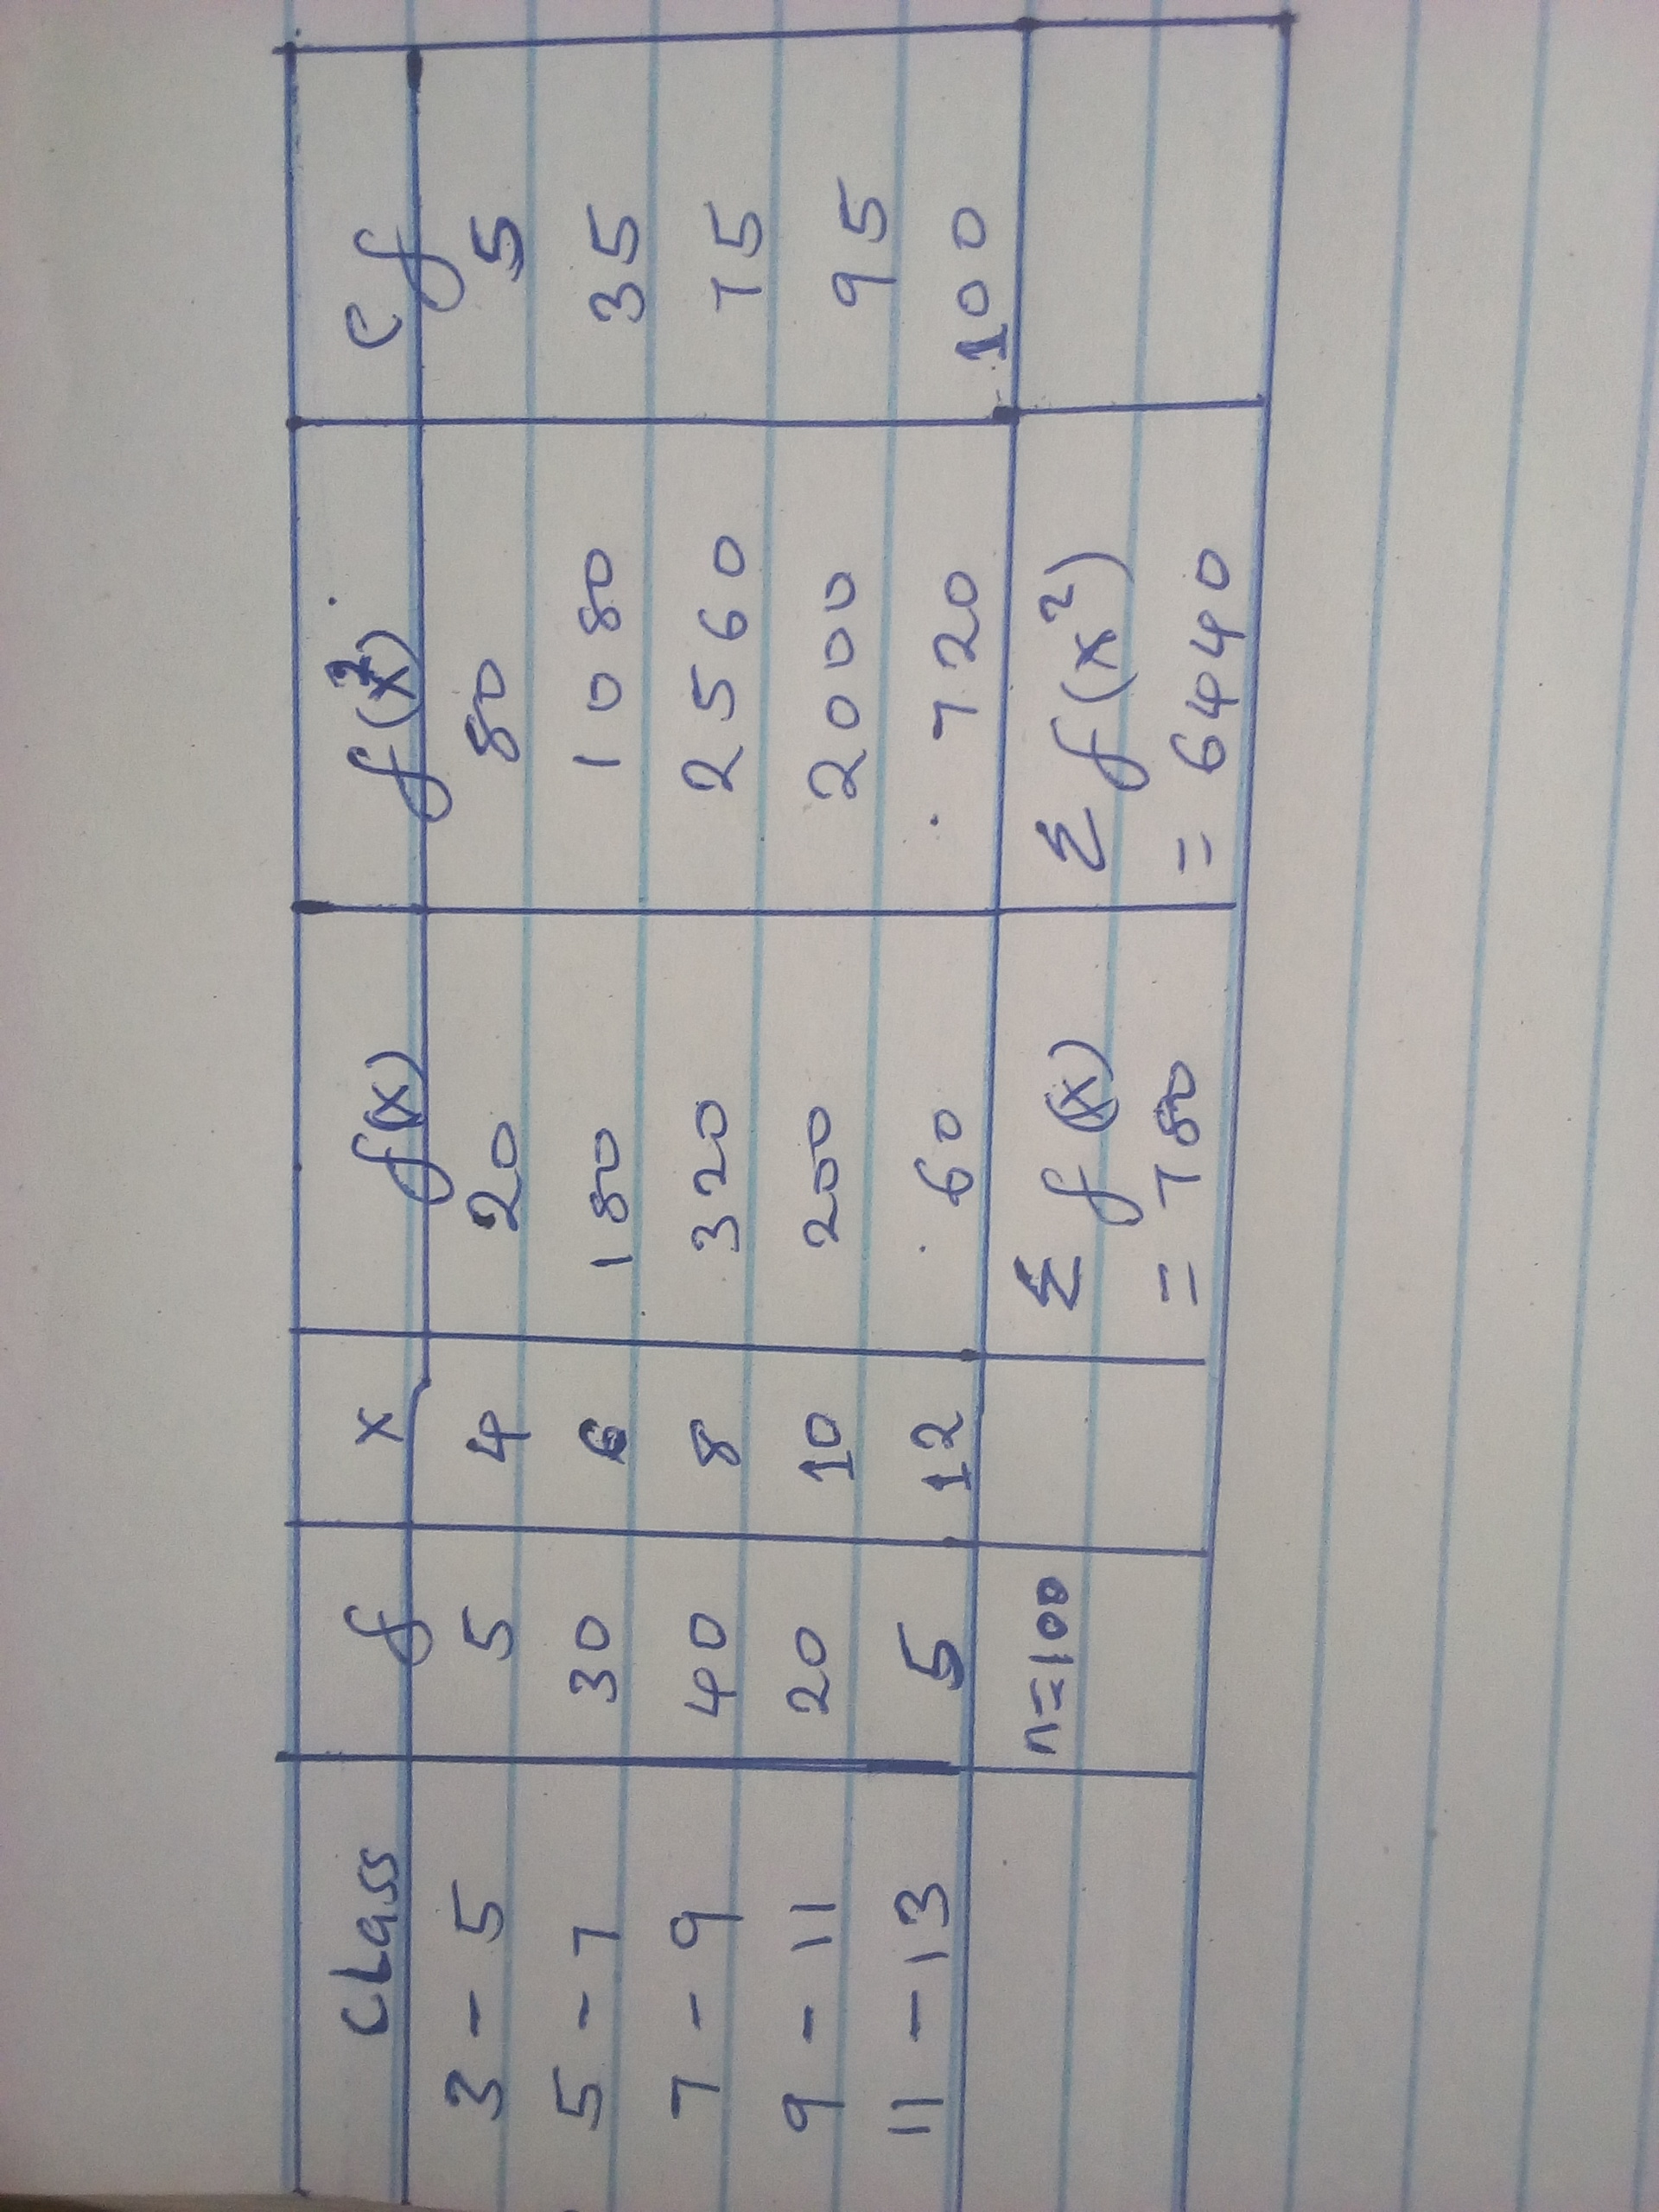 Class f x f(x) f(x²) cf
3 - 5 5 4 20 80 5
5 - 7 30 6 180 1080 35
7 - 9 40 8 320 2560 75
9 - 11 20 10 200 2000 95
11 - 13 5 12 60 720 100
n=100 Σ f(x) Σ f(x²)
= 780 = 6440